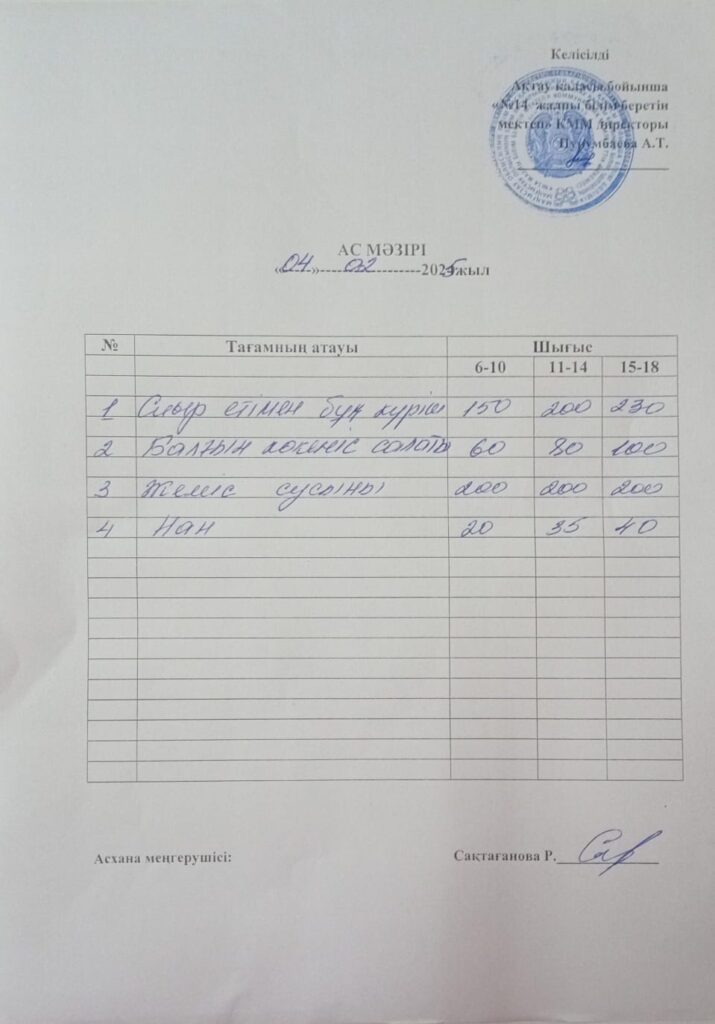 Келісілді
Ақтау қаласы бойынша
«№14 жалпы білім беретін
мектеп» КММ директоры
Нурумбаева А.Т.
АС МӘЗІРІ
«04»  02  2025 жыл
№ Тағамның атауы Шығыс
6-10 11-14 15-18
1 Сиыр етімен бұқ күріш 150 200 230
2 Балғын көкөніс салаты 60 80 100
3 Жеміс сусыны 200 200 200
4 Нан 20 35 40
Асхана меңгерушісі: Сақтағанова Р.